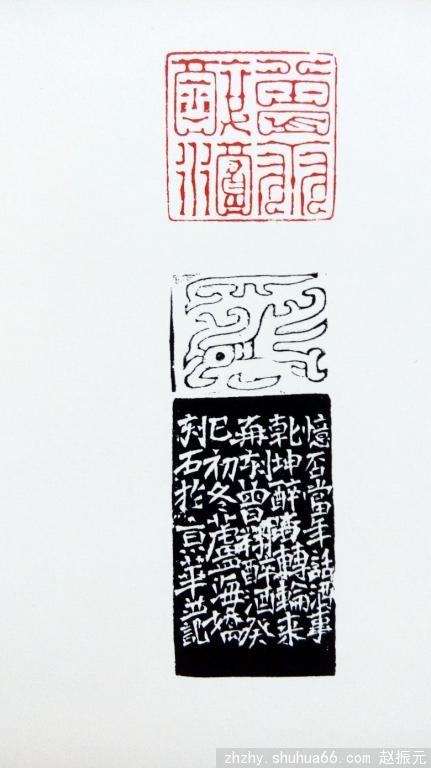 憶否當年話酒事
乾坤醉轉輪来
再刻曾翔酒癸
巳初冬蘆海嬌
刻石於京華並記
zhzhy.shuhua66.com 赵振元